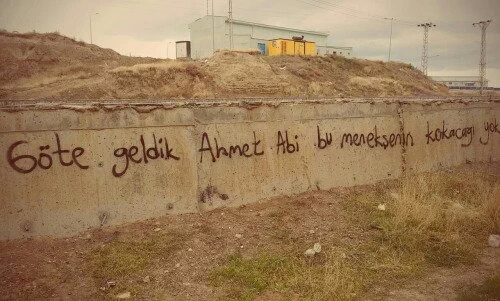 Göte geldik Ahmet Abi bu menekşenin kokacağı yok